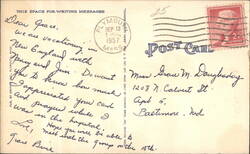 THIS SPACE FOR WRITING MESSAGES
Dear Grace,
We are vacationing in
New England with
Mary and Jim. Do want
you to know how much
I appreciated your cards
and prayers while I
was in the hospital.
Hope you will be able to
visit the group on the 15th.
PLYMOUTH
SEP 12
1957
MASS.
POST CARD
Miss Grace M. Daughaday
1208 N Calvert St
Apt 5,
Baltimore Md